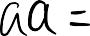 aa =